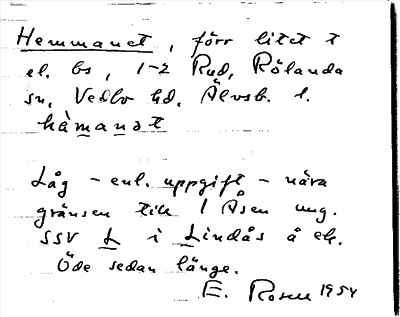 Hemmanet, förr litet t
el. bs, 1-2 Rud, Rölanda
sn, Vedbo hd, Älvsb. l.
hàmanət
Låg - enl. uppgift - nära
gränsen till 1 Åsen ung.
SSV L i Lindås å ek.
Öde sedan länge.
E. Rosen 1954